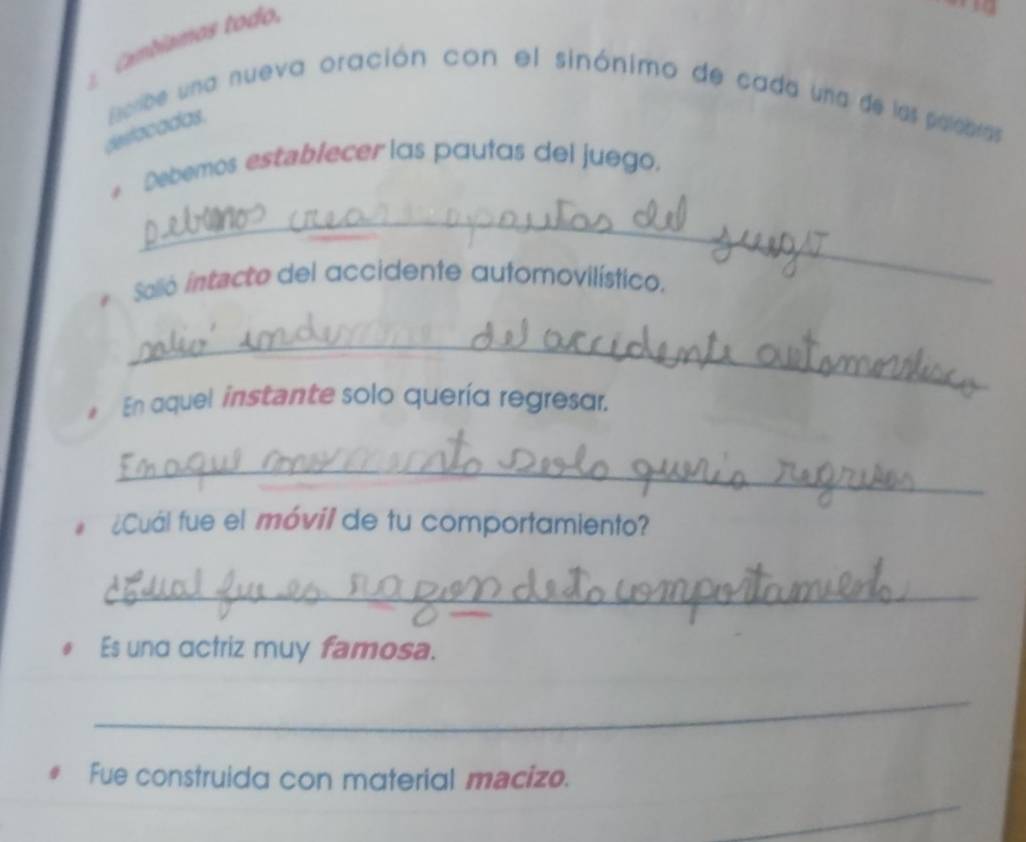 Cambiamos todo.
Escribe una nueva oración con el sinónimo de cada una de las palabras
destacadas.
Debemos establecer las pautas del juego.
Debemos crear pautas del juego
Salió intacto del accidente automovilístico.
salio del accidente
En aquel instante solo quería regresar.
solo queria
¿Cuál fue el móvil de tu comportamiento?
comportamiento
Es una actriz muy famosa.
Fue construida con material macizo.